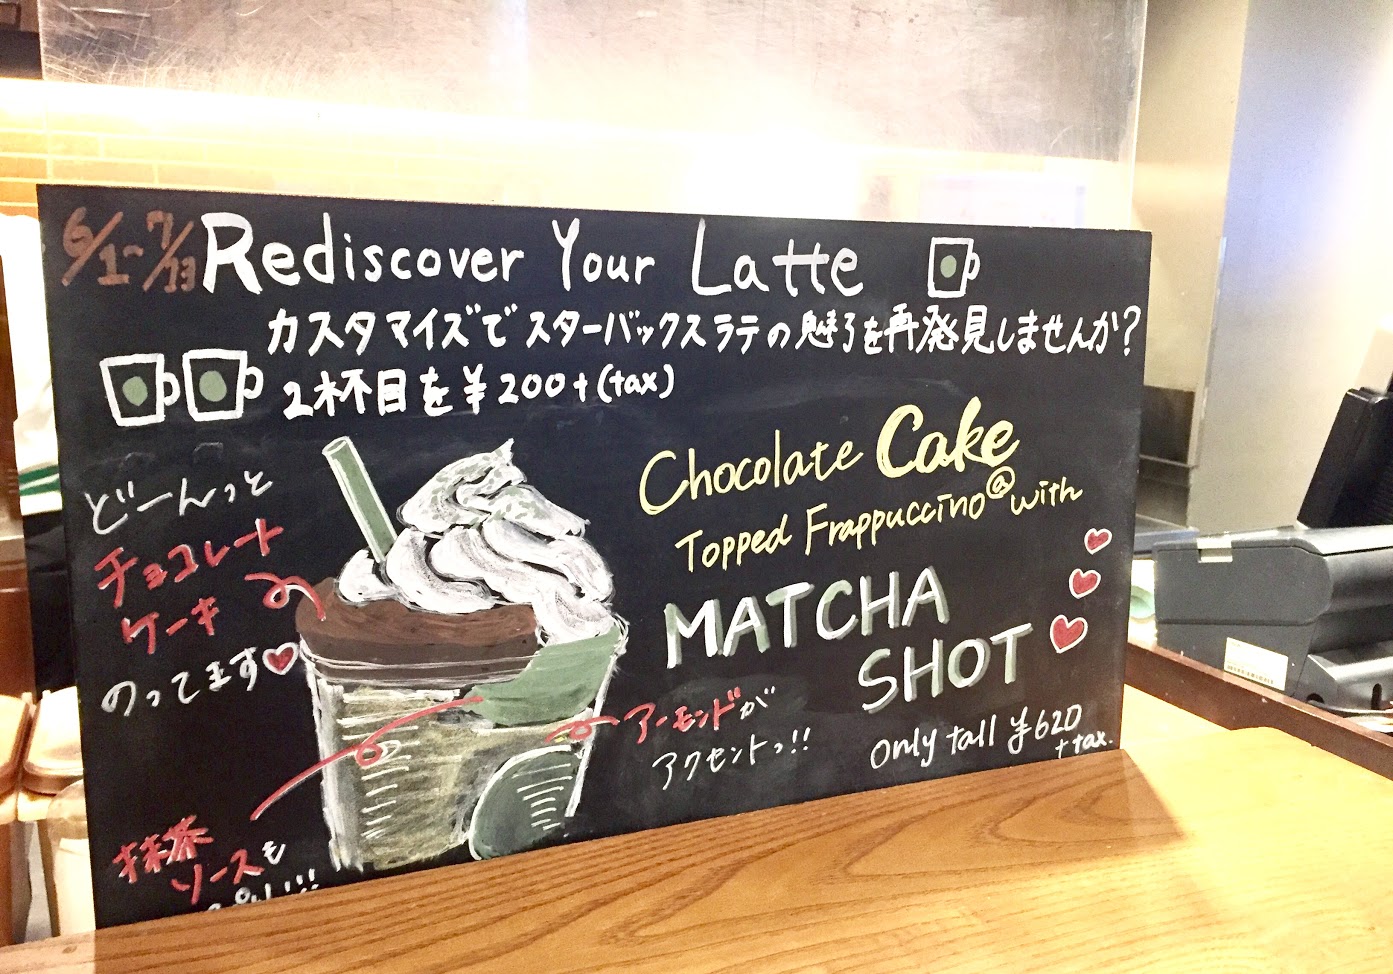 6/1~7/13 Rediscover Your Latte
カスタマイズでスターバックスラテの魅了を再発見しませんか?
2杯目を¥200+(tax)
Chocolate Cake
Topped Frappuccino@with
MATCHA
SHOT
only tall ¥620
+tax.
どーんっと
チョコレート
ケーキ
のってます
アーモンドが
アクセントっ!!
抹茶
ソースも